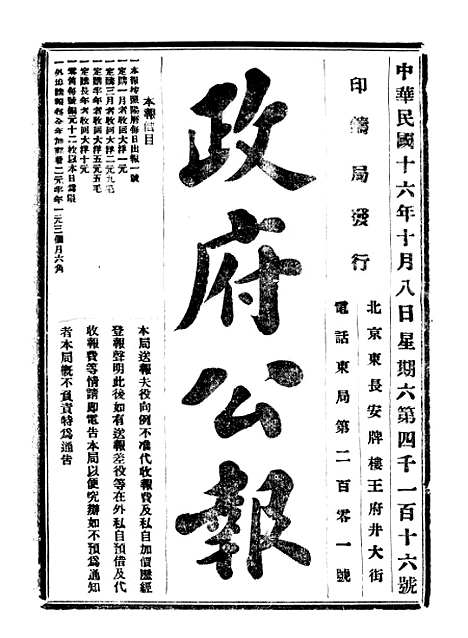 中華民國十六年十月八日星期六第四千一百十六號
印鑄局發行
北京東長安牌樓王府井大街
電話東局第二百零一號
政府公報
本局送報夫役向例不准代收報費及私自加價歷經
登報聲明此後如有送報差役等在外私自預借及代
收報費等情請即電告本局以便究辦如不預爲通知
者本局概不負責特爲通告
本報價目
一本報按照陽曆每日出報一號
一定閱一月者收回大洋一元
一定閱三月者收回大洋二元九毛
一定閱半年者收回大洋五元五毛
一定閱長年者收回大洋十元
一零賣每號銅元十二枚以本日爲限